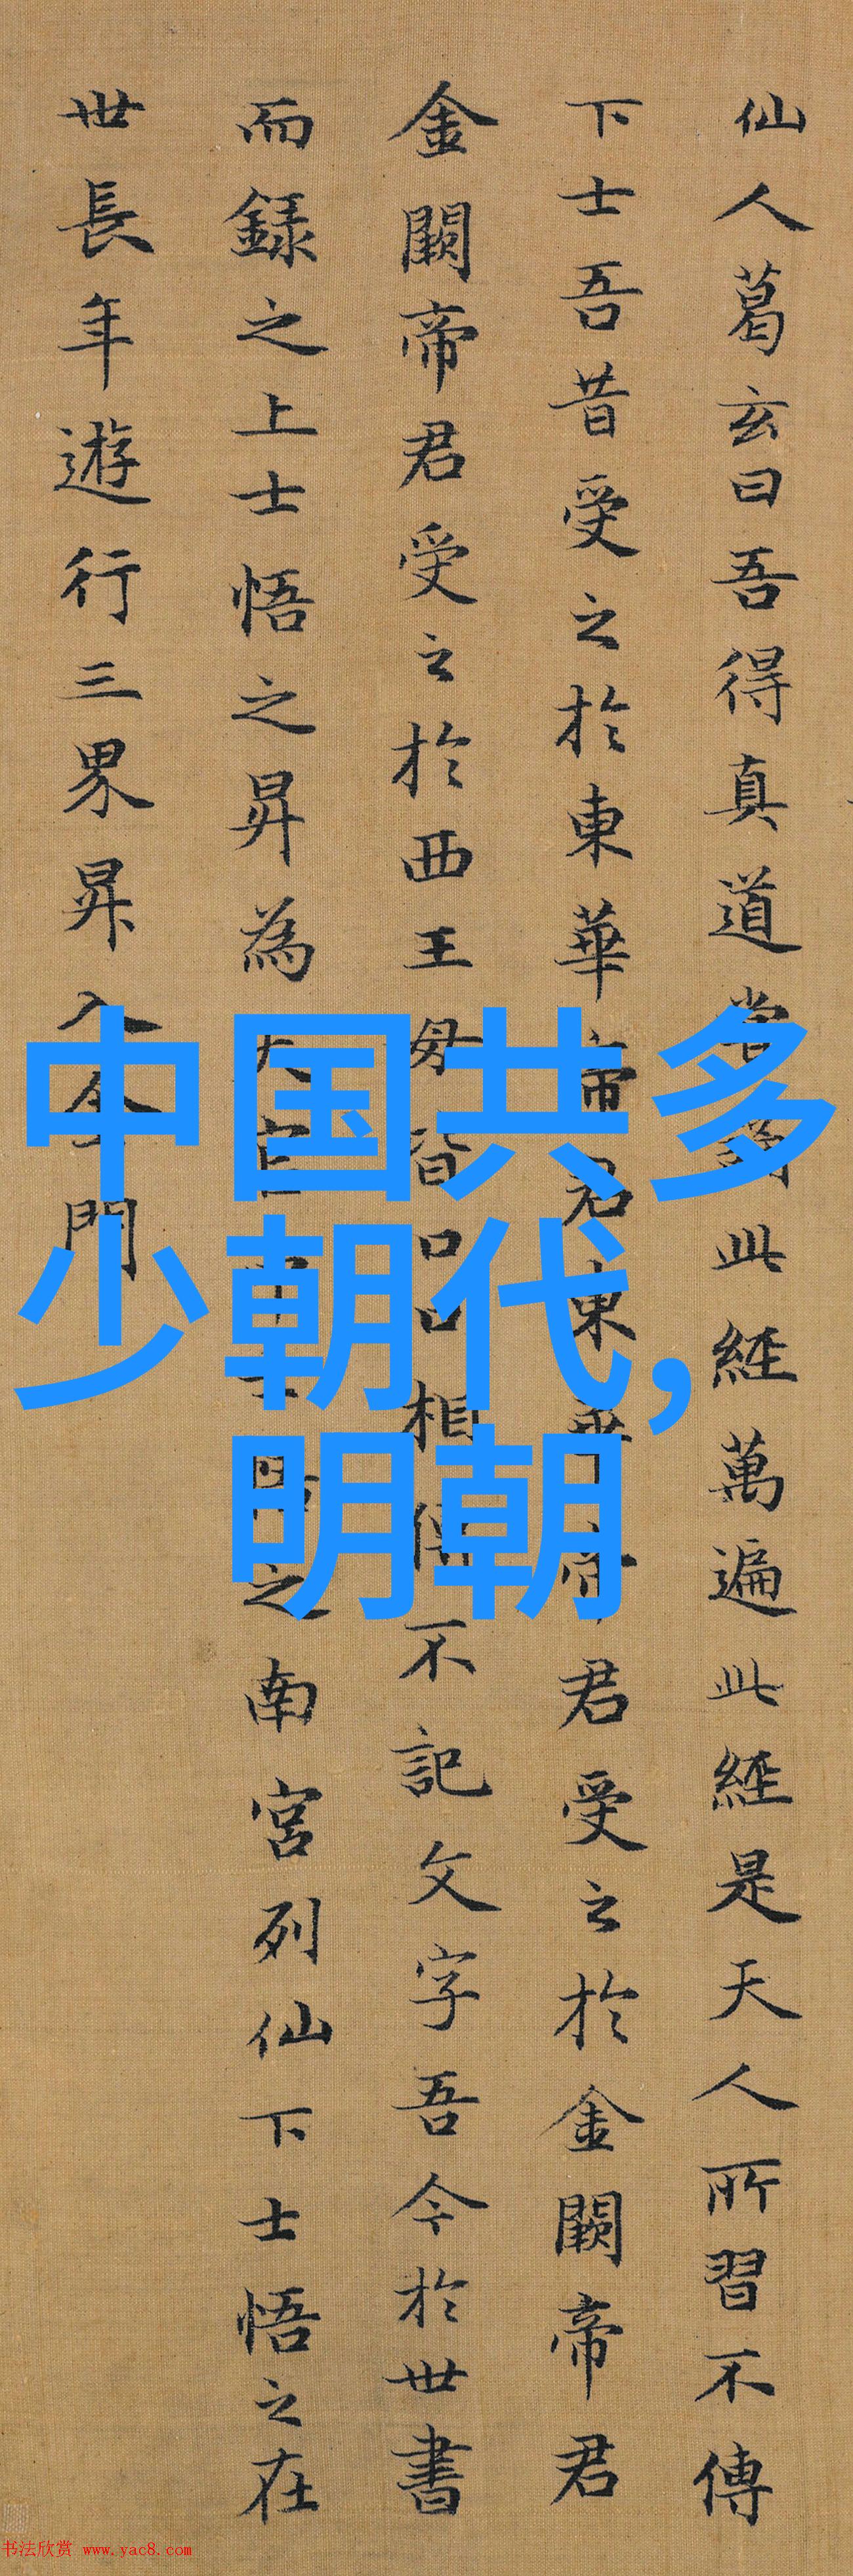 仙人葛玄曰吾得真道常誦此經萬遍此經是天人所習不傳
下士吾昔受之於東華帝君東華帝君受之於金闕帝君
金闕帝君受之於西王母皆口口相傳不記文字吾今於世書
而録之上士悟之昇為天官中士悟之南宮列仙下士悟之在
世長年遊行三界昇入金門
中国共多
少朝代,
明朝
书法欣赏 www.yac8.com